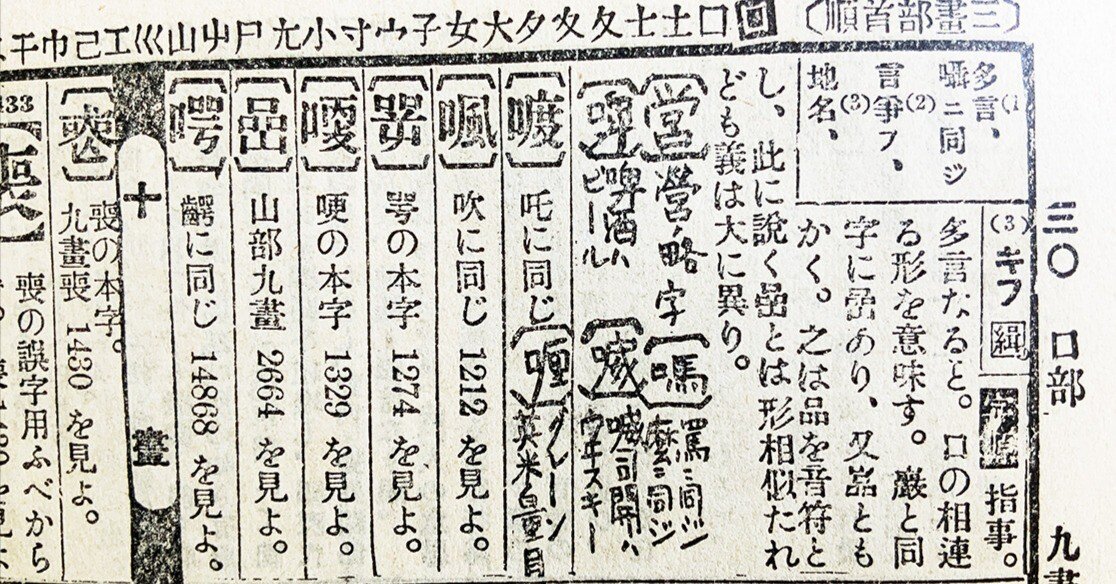 〔三畫部首順〕
囗口土士夂夊夕大女子宀寸小尢尸屮山巛工己巾干
三〇 口部 九畫
多言、
囁ニ同ジ
(2)
言爭フ、
(3)
地名、
(3) キフ 緝 字原 指事。
多言なること。口の相連
る形を意味す。巖と同
字に嵒あり、又嵓とも
かく。之は品を音符と
し、此に說く喦とは形相似たれ
ども義は大に異り。
〔営〕營ノ略字
〔嗎〕罵ニ同ジ
麼ニ同ジ
〔啤〕啤酒ハ
ビール
〔喴〕喴司開ハ
ウヰスキー
〔喥〕吒に同じ
〔喱〕グレーン
英米量目
〔㗘〕吹に同じ 1212 を見よ。
〔咢〕咢の本字 1274 を見よ。
〔㗋〕哽の本字 1329 を見よ。
〔喦〕山部九畫 2664 を見よ。
〔㗁〕齶に同じ 14868 を見よ。
十畫
喪の本字。
九畫喪 1430 を見よ。
喪の誤字用ふべから